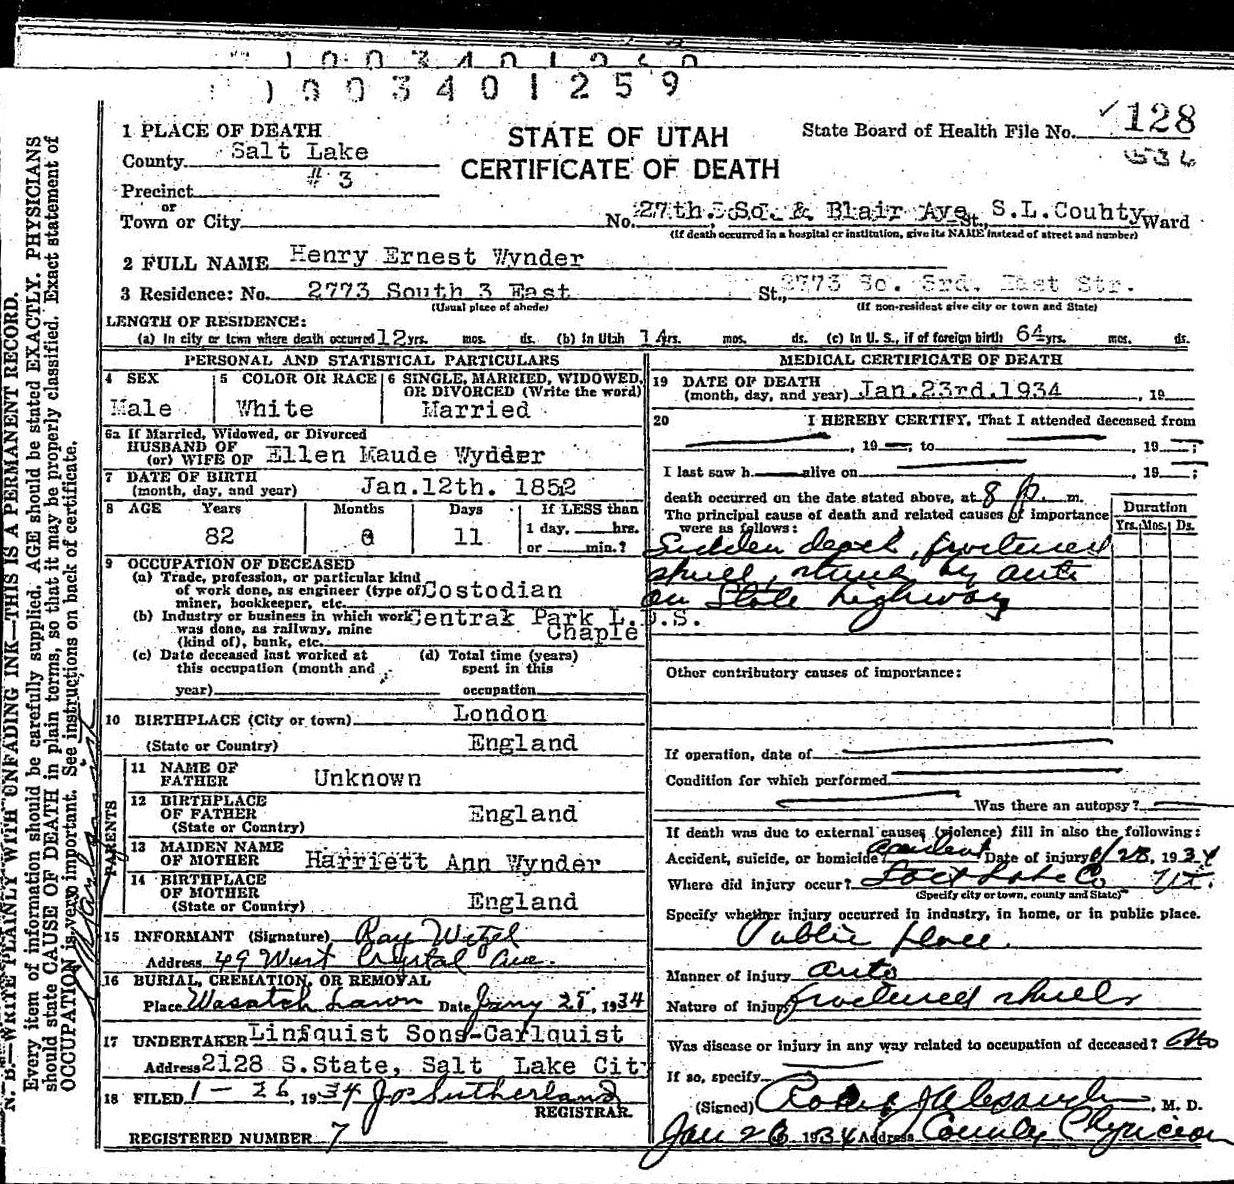 1003401259
STATE OF UTAH
CERTIFICATE OF DEATH
State Board of Health File No. 128
1 PLACE OF DEATH
County Salt Lake
Precinct # 3
or
Town or City
No. 27th. So. & Blair Ave St., S.L.County Ward
(If death occurred in a hospital or institution, give its NAME instead of street and number)
2 FULL NAME Henry Ernest Wynder
3 Residence: No. 2773 South 3 East St., 2773 So. 3rd. East Str.
(Usual place of abode) (If non-resident give city or town and State)
LENGTH OF RESIDENCE:
(a) In city or town where death occurred 12 yrs. mos. ds. (b) In Utah 14 yrs. mos. ds. (c) In U. S., if of foreign birth 64 yrs. mos. ds.
PERSONAL AND STATISTICAL PARTICULARS
4 SEX
Male
5 COLOR OR RACE
White
6 SINGLE, MARRIED, WIDOWED,
OR DIVORCED (Write the word)
Married
6a If Married, Widowed, or Divorced
HUSBAND OF
(or) WIFE OF Ellen Maude Wydder
7 DATE OF BIRTH
(month, day, and year) Jan.12th. 1852
8 AGE Years Months Days If LESS than
82 0 11 1 day, hrs.
or min.?
9 OCCUPATION OF DECEASED
(a) Trade, profession, or particular kind
of work done, as engineer (type of Costodian
miner, bookkeeper, etc.
(b) Industry or business in which work Centrak Park L.D.S.
was done, as railway, mine Chaple
(kind of), bank, etc.
(c) Date deceased last worked at
this occupation (month and
year)
(d) Total time (years)
spent in this
occupation
10 BIRTHPLACE (City or town) London
(State or Country) England
PARENTS
11 NAME OF
FATHER Unknown
12 BIRTHPLACE
OF FATHER England
(State or Country)
13 MAIDEN NAME
OF MOTHER Harriett Ann Wynder
14 BIRTHPLACE
OF MOTHER
(State or Country) England
15 INFORMANT (Signature) Ray Witzel
Address 49 West Crystal Ave.
16 BURIAL, CREMATION, OR REMOVAL
Place Wasatch Lawn Date Jany 28, 1934
17 UNDERTAKER Linfquist Sons-Carlquist
Address 2128 S.State, Salt Lake City
18 FILED 1-26, 1934 Jos Sutherland
REGISTRAR.
REGISTERED NUMBER 7
MEDICAL CERTIFICATE OF DEATH
19 DATE OF DEATH
(month, day, and year) Jan.23rd.1934, 19
20 I HEREBY CERTIFY, That I attended deceased from
, 19 to , 19 ;
I last saw h alive on , 19 ;
death occurred on the date stated above, at 8 p. m.
The principal cause of death and related causes of importance
were as follows:
Duration
Yrs. Mos. Ds.
Sudden death, fractured
skull, struck by auto
on State highway
Other contributory causes of importance:
If operation, date of
Condition for which performed
Was there an autopsy?
If death was due to external causes (violence) fill in also the following:
Accident, suicide, or homicide? accident Date of injury 1/23, 1934
Where did injury occur? Salt Lake Co Ut.
(Specify city or town, county and State)
Specify whether injury occurred in industry, in home, or in public place.
Public place.
Manner of injury auto
Nature of injury fractured skull
Was disease or injury in any way related to occupation of deceased? No
If so, specify
(Signed) , M. D.
Jan 26 1934 Address County Physician
N. B.—WRITE PLAINLY WITH UNFADING INK—THIS IS A PERMANENT RECORD.
Every item of information should be carefully supplied. AGE should be stated EXACTLY. PHYSICIANS
should state CAUSE OF DEATH in plain terms, so that it may be properly classified. Exact statement of
OCCUPATION is very important. See instructions on back of certificate.